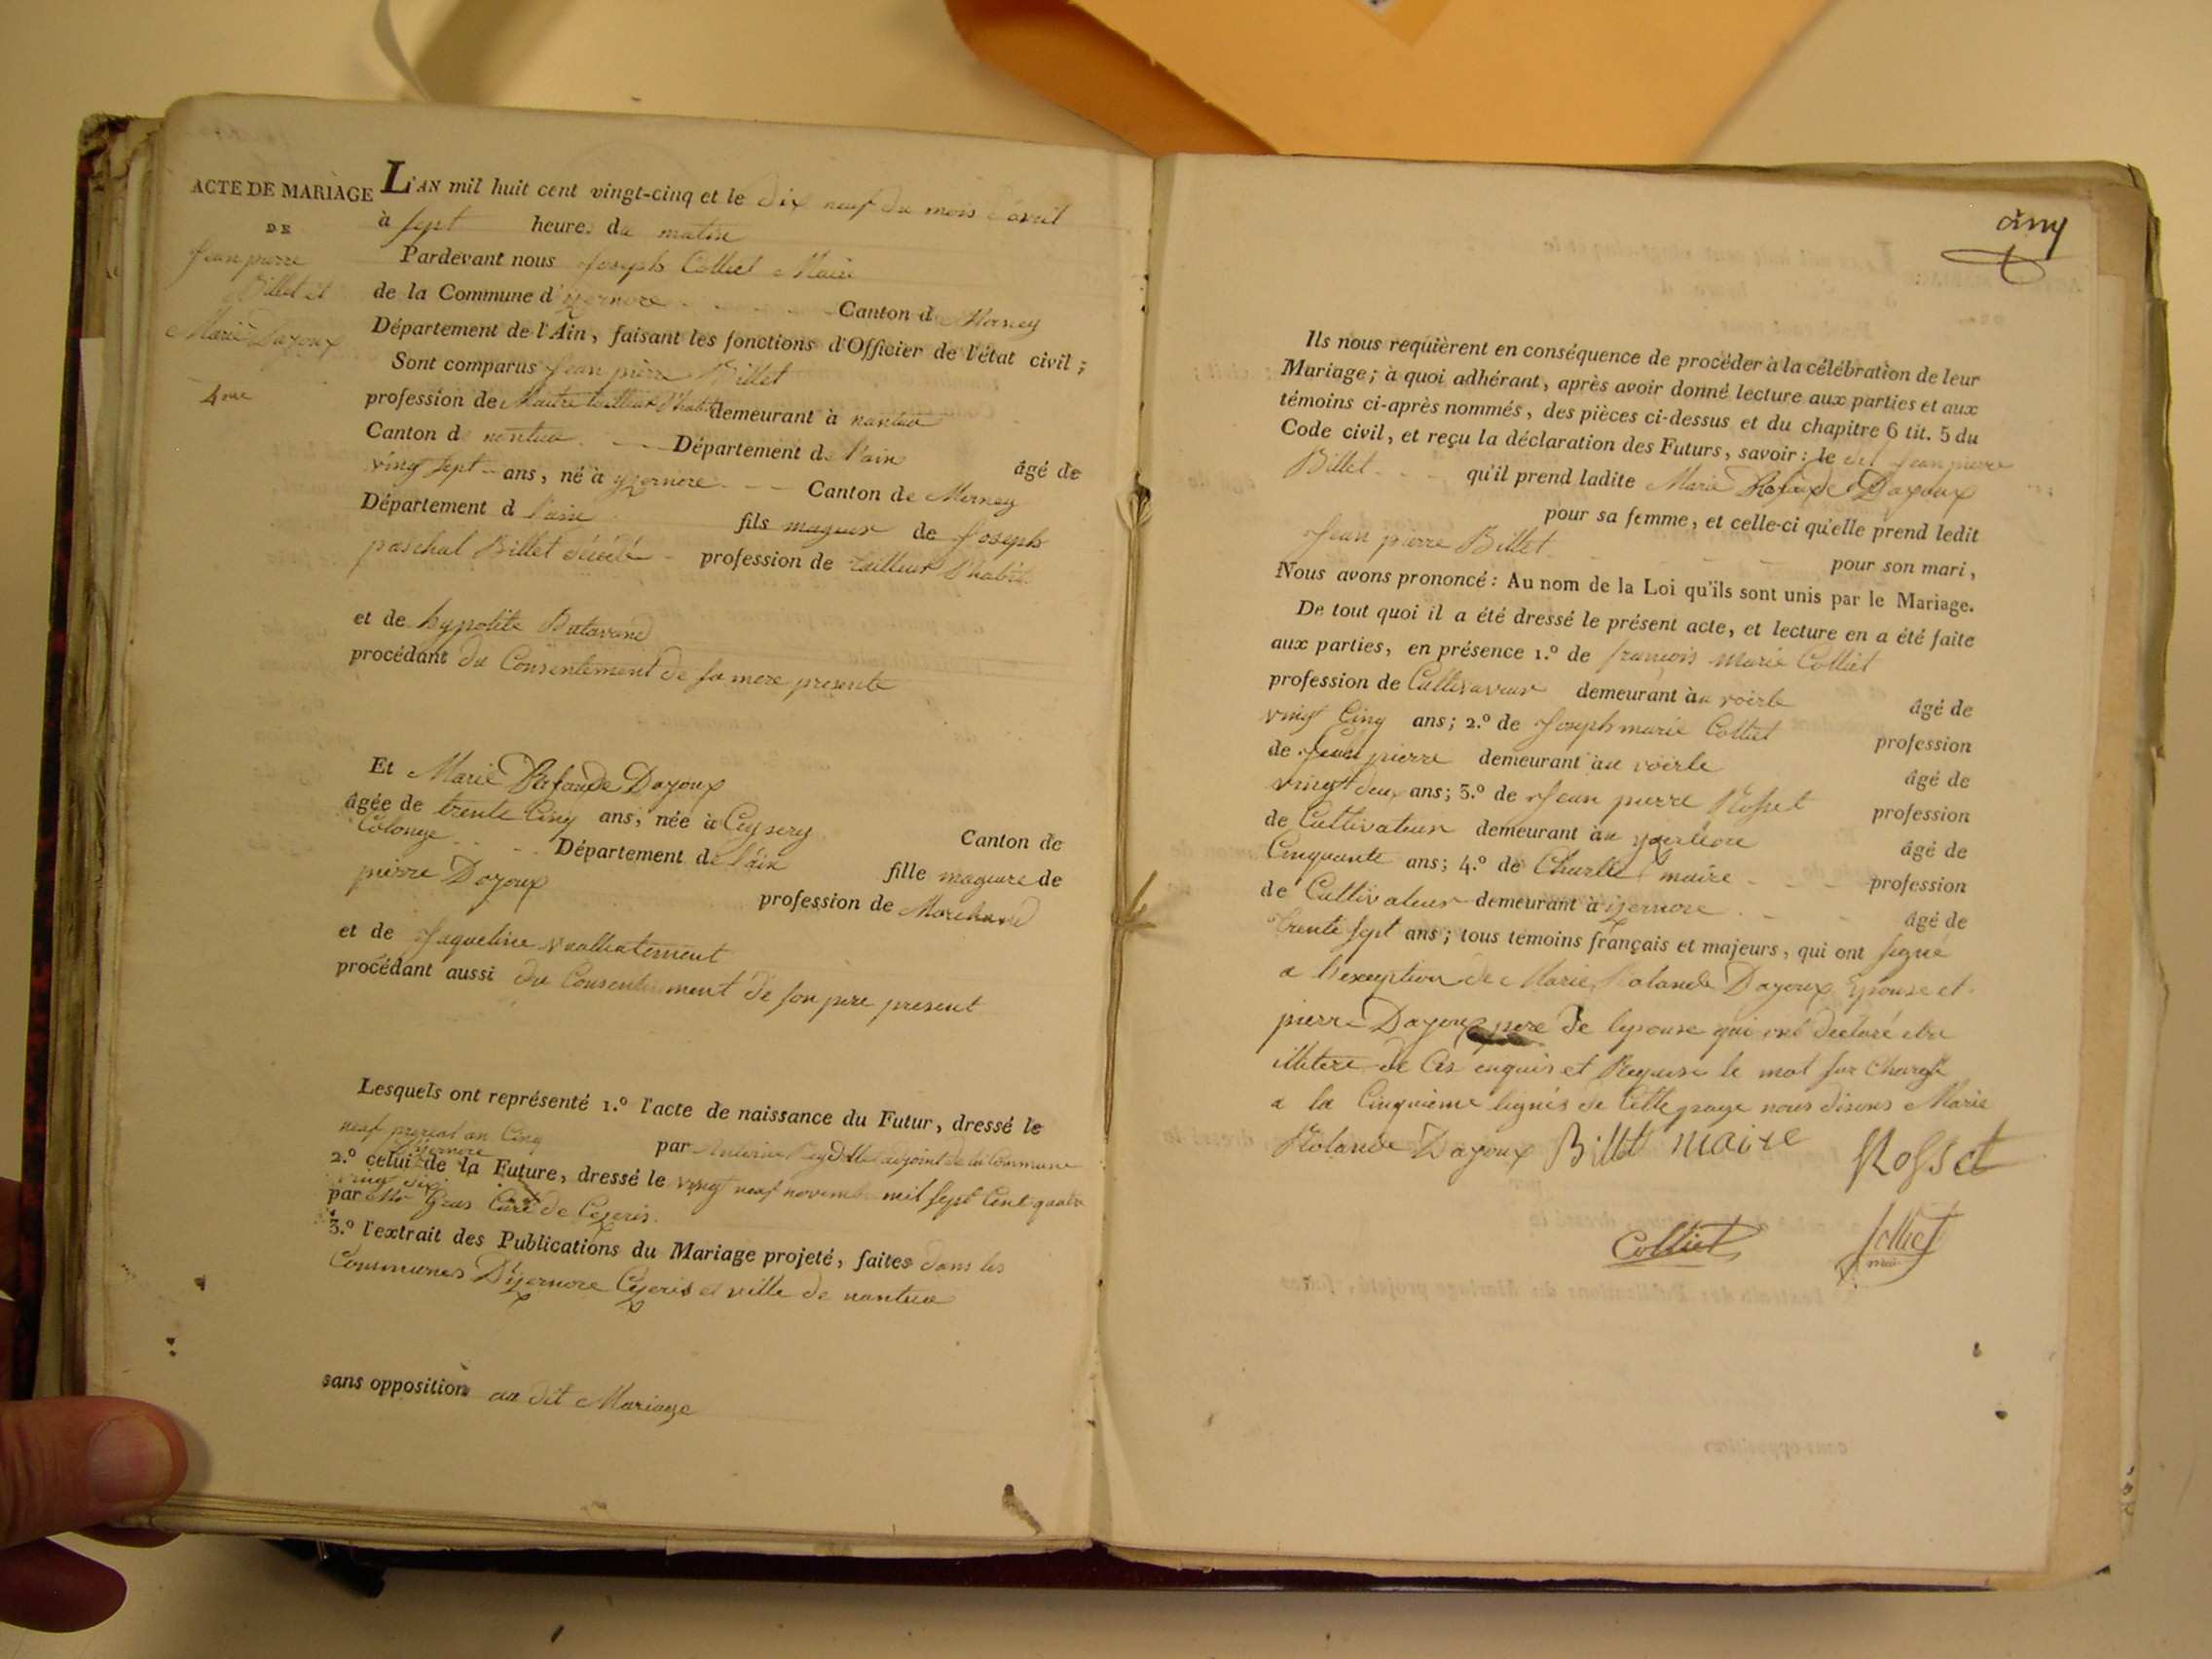 ACTE DE MARIAGE
DE
Jean pierre
Billet et
Marie Dayoux
4me
L'AN mil huit cent vingt-cinq et le dix neuf du mois d'avril
à sept heures du matin
Pardevant nous Joseph Colliet Maire
de la Commune d'yzernore Canton de Morney
Département de l'Ain, faisant les fonctions d'Officier de l'état civil ;
Sont comparus Jean pierre Billet
profession de Maitre tailleur d'habit demeurant à nantua
Canton de nantua Département de l'ain âgé de
vingt sept ans, né à yzernore Canton de Morney
Département d l'ain fils mageur de Joseph
paschal Billet décédé profession de tailleur d'habit
et de hypolite Batavand
procédant du Consentement de sa mere presente
Et Marie Dayoux
âgée de trente Cinq ans, née à Ceysery Canton de
Colonge Département de l'ain fille mageure de
pierre Dayoux profession de Marchand
et de Jaqueline
procédant aussi du Consentement de son pere present
Lesquels ont représenté 1.º l'acte de naissance du Futur, dressé le
neuf prereal an Cinq par Antoine adjoint de la Commune
d'yzernore
2.º celui de la Future, dressé le vingt neuf novemb mil sept Cent quatre
vingt dix
par Mr Gras Curé de Cezeris.
3.º l'extrait des Publications du Mariage projeté, faites dans les
Communes D'yzernore Cezeris et ville de nantua
sans opposition au dit Mariage
cinq
Ils nous requièrent en conséquence de procéder à la célébration de leur
Mariage ; à quoi adhérant, après avoir donné lecture aux parties et aux
témoins ci-après nommés, des pièces ci-dessus et du chapitre 6 tit. 5 du
Code civil, et reçu la déclaration des Futurs, savoir : le dit Jean pierre
Billet qu'il prend ladite Marie Dayoux
pour sa femme, et celle-ci qu'elle prend ledit
Jean pierre Billet pour son mari,
Nous avons prononcé : Au nom de la Loi qu'ils sont unis par le Mariage.
De tout quoi il a été dressé le présent acte, et lecture en a été faite
aux parties, en présence 1.º de françois marie Colliet
profession de Cultivateur demeurant au voirle âgé de
vingt Cinq ans ; 2.º de Joseph marie Colliet profession
de Jean pierre demeurant au voirle âgé de
vingt deux ans ; 3.º de Jean pierre Rosset profession
de Cultivateur demeurant à yzernore âgé de
Cinquante ans ; 4.º de Charle maire profession
de Cultivateur demeurant à yzernore âgé de
trente sept ans ; tous témoins français et majeurs, qui ont signé
a l'exception de Marie Rolande Dayoux Epouse et
pierre Dayoux pere de lepouse qui ont declaré etre
illitere de Ces enquis et Requise le mot sur Chargé
a la Cinquieme lignes de Cette page nous disons Marie
Rolande Dayoux Billet maire Rosset
Colliet Colliet